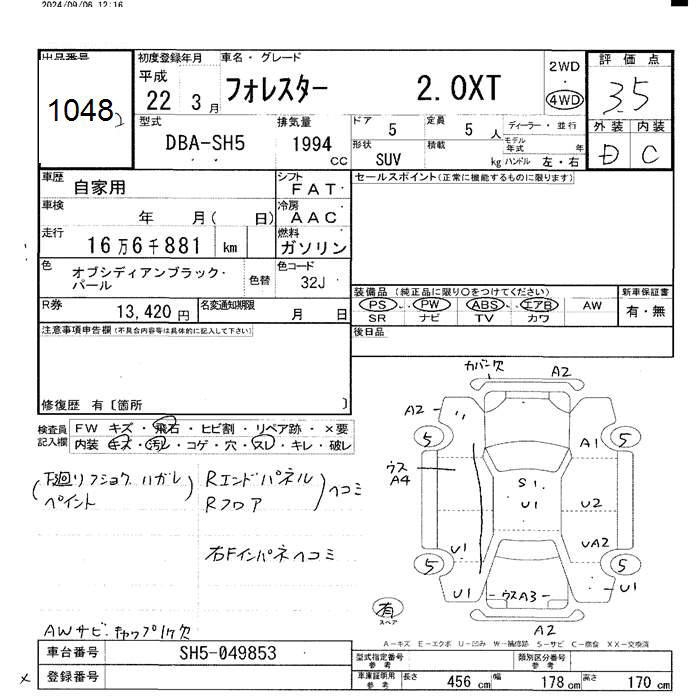 2024/09/06 12:16
出品番号
1048
初度登録年月
平成
22 3月
車名・グレード
フォレスター 2.0XT
2WD
・
4WD
評価点
3.5
外装 内装
D C
型式
DBA-SH5
排気量
1994
CC
ドア
5
定員
5 人
形状
SUV
積載
kg
ディーラー・並行
モデル
年式
年
ハンドル 左・右
車歴
自家用
シフト
FAT
車検
年 月( 日)
冷房
AAC
走行
16万6千881 km
燃料
ガソリン
色
オブシディアンブラック・
パール
色替
色コード
32J
R券
13,420円
名変通知期限
月 日
セールスポイント(正常に機能するものに限ります)
装備品 (純正品に限り○をつけてください)
PS PW ABS エアB AW
SR ナビ TV カワ
新車保証書
有・無
後日品
注意事項申告欄(不具合内容等は具体的に記入して下さい)
修復歴 有〔箇所 〕
検査員
記入欄
FW キズ・飛石・ヒビ割・リペア跡・×要
内装 キズ・汚レ・コゲ・穴・スレ・キレ・破レ
(下廻リフショク ハガレ
ペイント)
Rエンドパネル
Rフロア
)ヘコミ
右Fインパネヘコミ
AWサビ・キャップ1ケ欠
カバー欠
A2
A2
5
5
A1
ウス
A4
S1
U1
U2
U1
UA2
5
5
U1
ウスA3
U1
有
スペア
A2
A－キズ E－エクボ U－凹み W－補修跡 S－サビ C－腐食 XX－交換済
車台番号
SH5-049853
登録番号
型式指定番号
参考
類別区分番号
参考
車庫証明用
参考
長さ 456 cm
幅 178 cm
高さ 170 cm